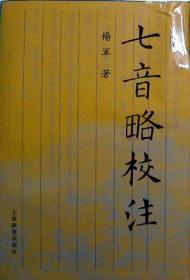 七音略校注
楊軍 著
上海辭書出版社